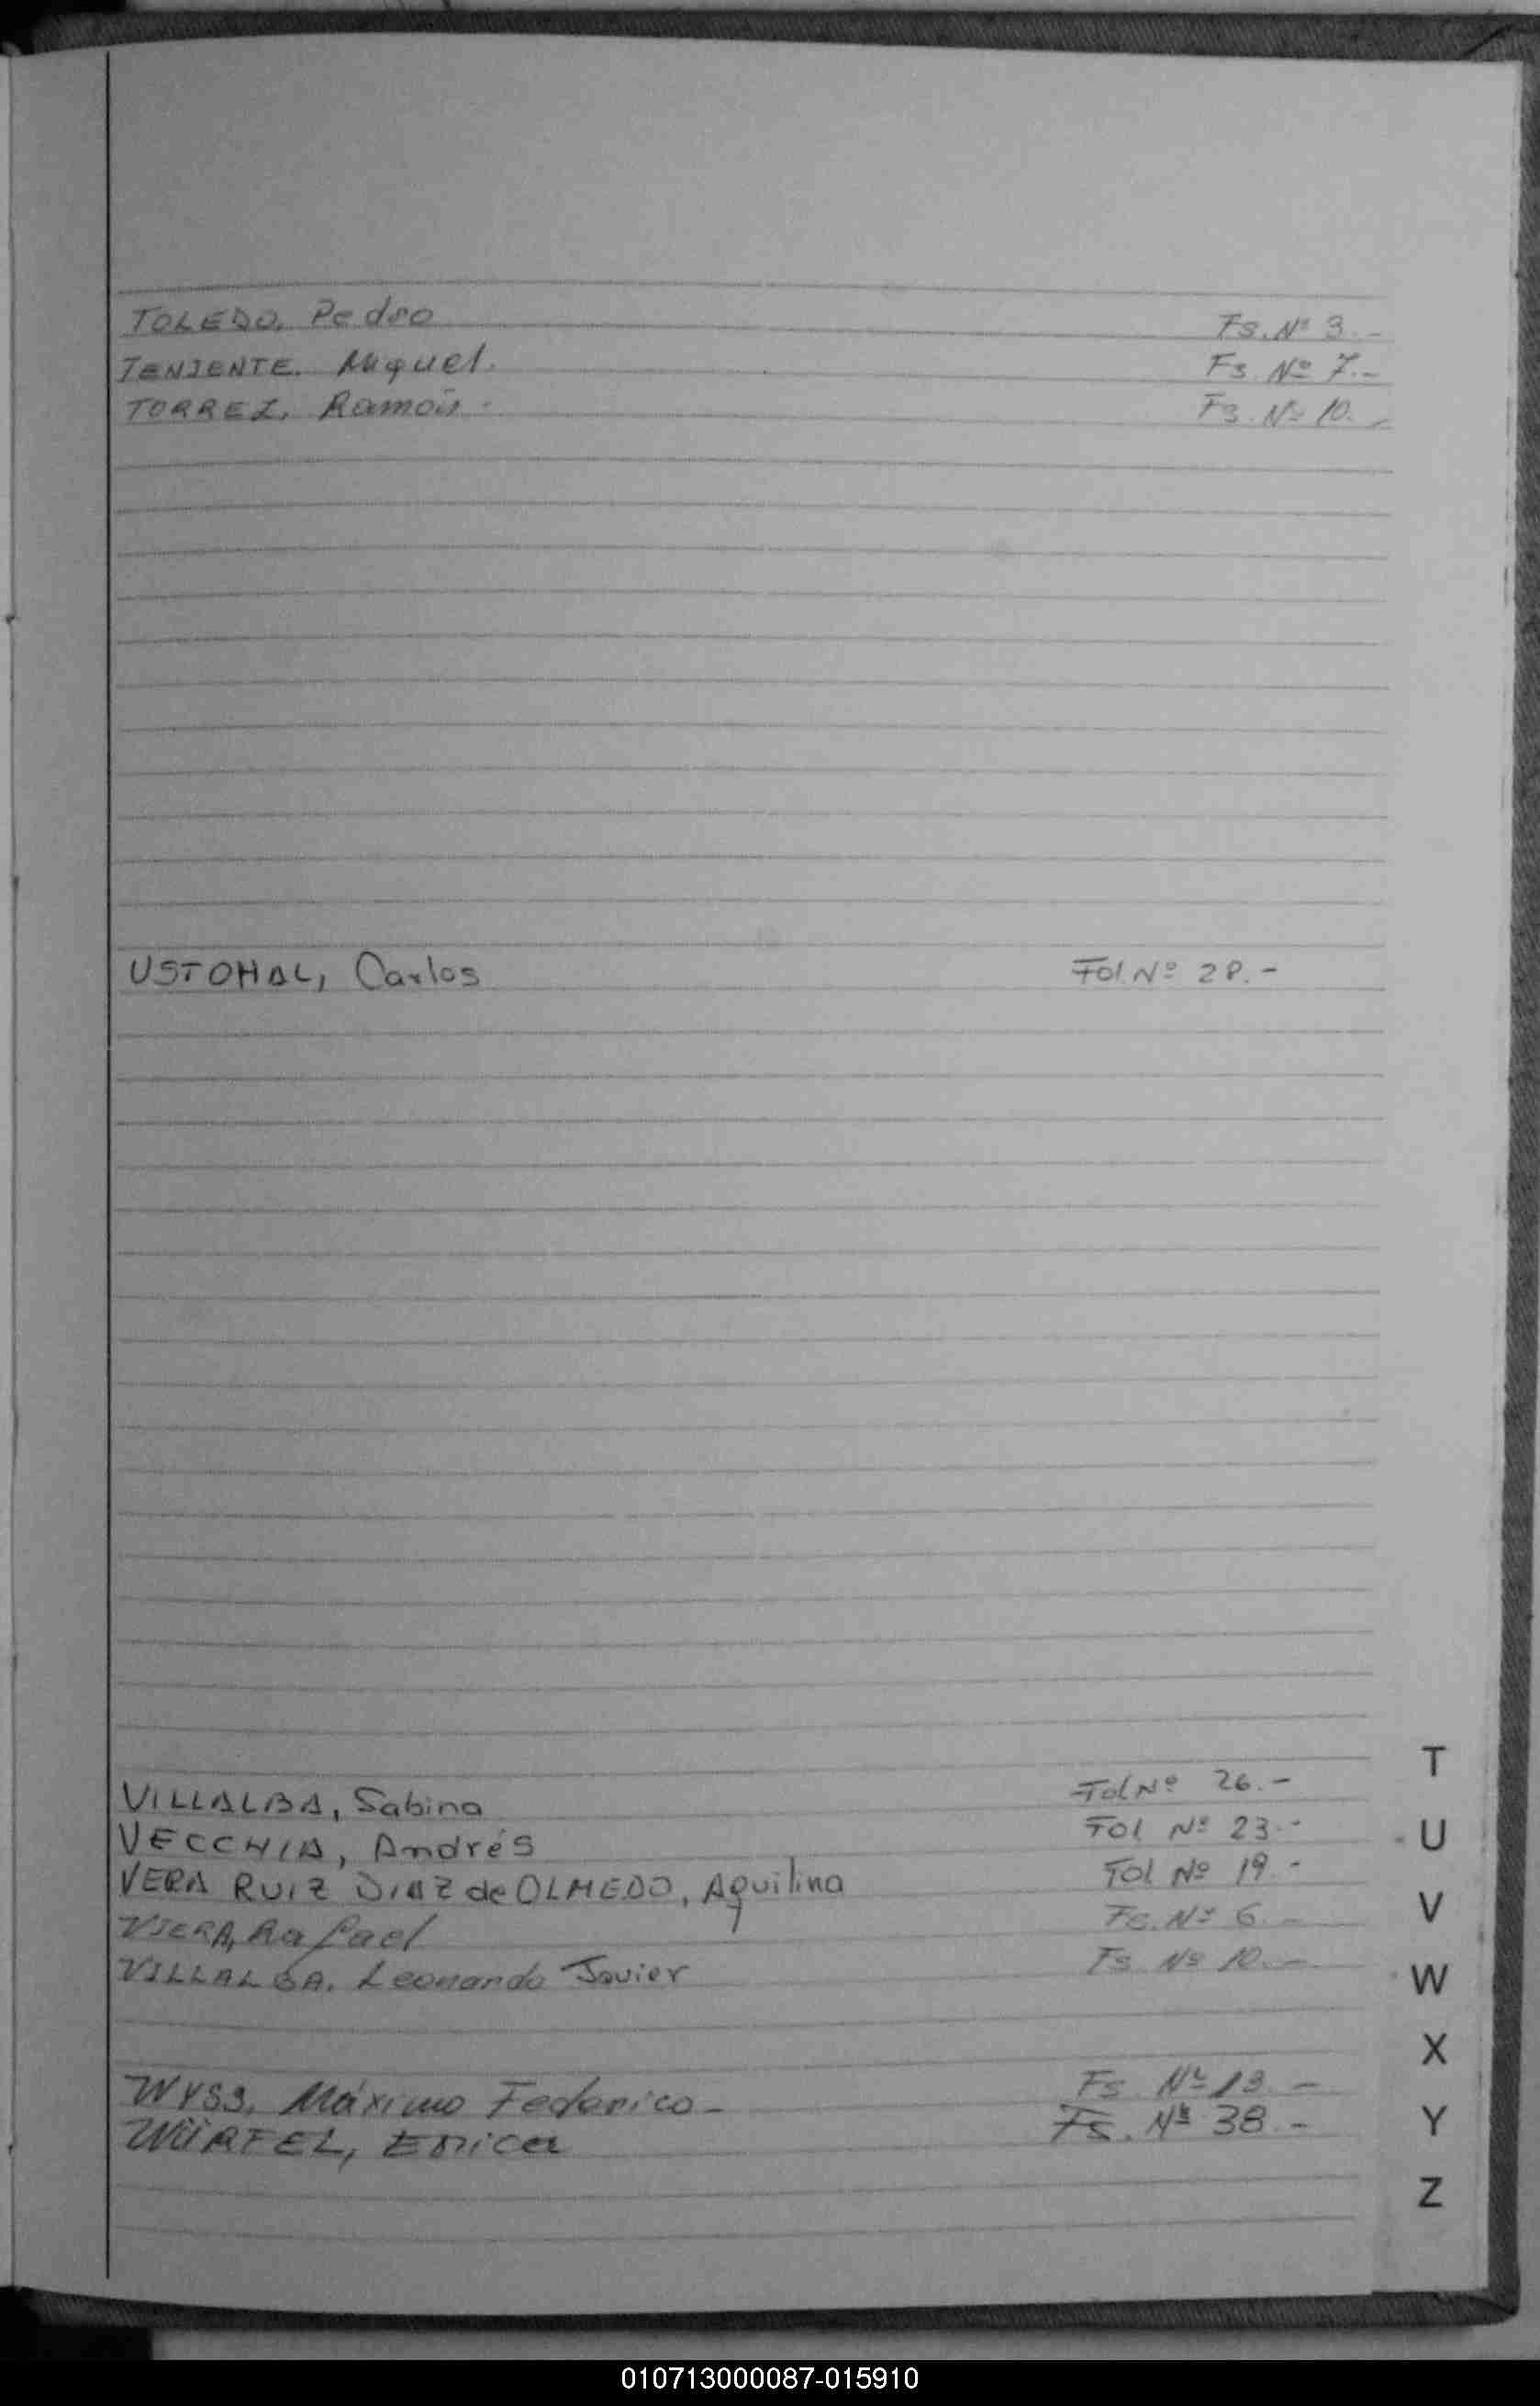 TOLEDO, Pedro Fs. Nº 3.-
TENIENTE. Miguel. Fs. Nº 7.-
TORREZ, Ramón. Fs. Nº 10.-
USTOHAL, Carlos Fol. Nº 28.-
VILLALBA, Sabina Fol Nº 26.-
VECCHIA, Andrés Fol Nº 23.-
VERA RUIZ DIAZ de OLMEDO, Aquilina Fol Nº 19.-
VIERA, Rafael Fs. Nº 6.-
VILLALBA. Leonardo Javier Fs. Nº 10.-
WYSS, Máximo Federico- Fs. Nº 13.-
WÜRFEL, Erica Fs. Nº 38.-
T
U
V
W
X
Y
Z
010713000087-015910